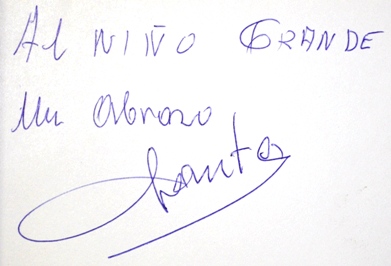 Al NIÑO GRANDE
Un Abrazo
Santos